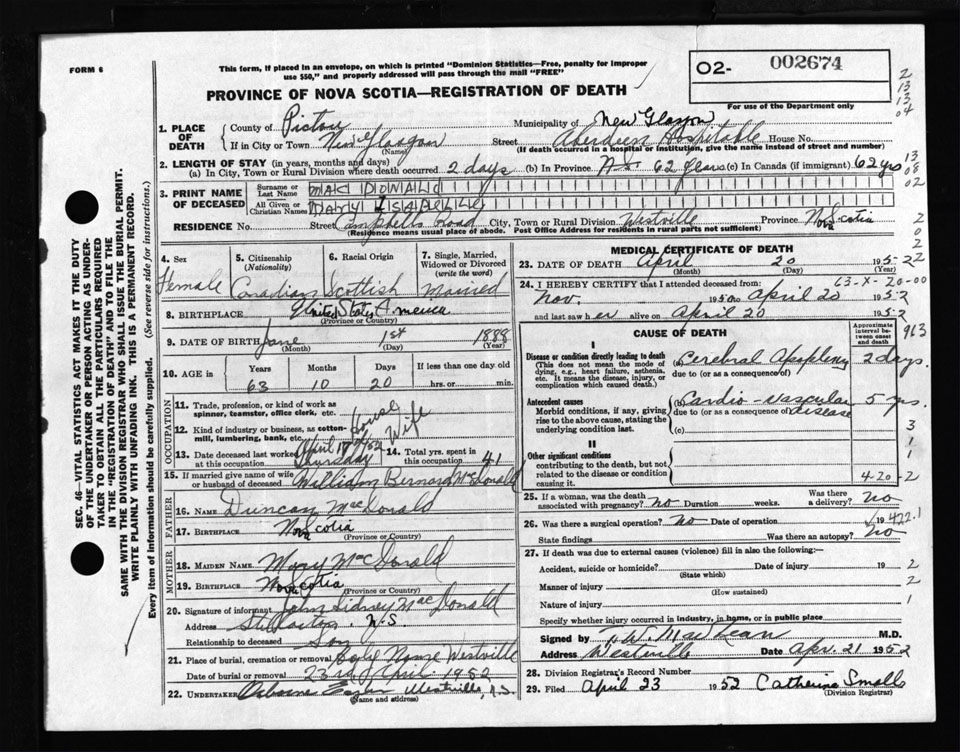 FORM 6
This form, if placed in an envelope, on which is printed "Dominion Statistics—Free, penalty for improper
use $50," and properly addressed will pass through the mail "FREE"
O2- 002674
PROVINCE OF NOVA SCOTIA—REGISTRATION OF DEATH
For use of the Department only
2
13
13
04
1. PLACE OF DEATH
County of Pictou Municipality of New Glasgow
If in City or Town New Glasgow Street Aberdeen Hospitable House No.
(Name) (If death occurred in a hospital or institution, give name instead of street and number)
2. LENGTH OF STAY (in years, months and days)
(a) In City, Town or Rural Division where death occurred 2 days (b) In Province N.S. 62 years (c) In Canada (if immigrant) 62 yrs
13
08
02
3. PRINT NAME OF DECEASED
Surname or Last Name MAC DONALD
All Given or Christian Names MARY ISABELLE
RESIDENCE No. Street Campbells Road City, Town or Rural Division Westville Province Nova Scotia
(Residence means usual place of abode. Post Office Address for residents in rural parts not sufficient)
2
0
2
2
SEC. 46—VITAL STATISTICS ACT MAKES IT THE DUTY
OF THE UNDERTAKER OR PERSON ACTING AS UNDER-
TAKER TO OBTAIN ALL THE PARTICULARS REQUIRED
IN THE "REGISTRATION OF DEATH" AND TO FILE THE
SAME WITH THE DIVISION REGISTRAR WHO SHALL ISSUE THE BURIAL PERMIT.
WRITE PLAINLY WITH UNFADING INK. THIS IS A PERMANENT RECORD.
Every item of information should be carefully supplied. (See reverse side for instructions.)
4. Sex Female
5. Citizenship (Nationality) Canadian
6. Racial Origin Scottish
7. Single, Married, Widowed or Divorced (write the word) Married
8. BIRTHPLACE United States America
(Province or Country)
9. DATE OF BIRTH June 1st 1888
(Month) (Day) (Year)
10. AGE in Years Months Days If less than one day old
63 10 20 hrs. or min.
OCCUPATION
11. Trade, profession or kind of work as spinner, teamster, office clerk, etc. House
12. Kind of industry or business, as cotton-mill, lumbering, bank, etc. Wife
13. Date deceased last worked at this occupation April 17th/52 Thursday
14. Total yrs. spent in this occupation 41
15. If married give name of wife or husband of deceased William Bernard McDonald
FATHER
16. NAME Duncan MacDonald
17. BIRTHPLACE Nova Scotia
(Province or Country)
MOTHER
18. MAIDEN NAME Mary MacDonald
19. BIRTHPLACE Nova Scotia
(Province or Country)
20. Signature of informant John Sidney MacDonald
Address Stellarton N.S
Relationship to deceased Son
21. Place of burial, cremation or removal Westville
Date of burial or removal 23rd April 1952
22. UNDERTAKER Osborne Westville, N.S.
(Name and address)
MEDICAL CERTIFICATE OF DEATH
23. DATE OF DEATH April 20 1952
(Month) (Day) (Year)
24. I HEREBY CERTIFY that I attended deceased from: 63-X-20-00
Nov. 1950 to April 20 1952
and last saw her alive on April 20 1952
CAUSE OF DEATH
Approximate interval between onset and death
963
I
Disease or condition directly leading to death
(This does not mean the mode of dying, e.g., heart failure, asthenia, etc. It means the disease, injury, or complication which caused death.)
(a) Cerebral Apoplexy 2 days
due to (or as a consequence of)
Antecedent causes
Morbid conditions, if any, giving rise to the above cause, stating the underlying condition last.
(b) Cardio-vascular disease 5 yrs.
due to (or as a consequence of)
(c)
3
1
1
II
Other significant conditions
contributing to the death, but not related to the disease or condition causing it.
4-20-2
25. If a woman, was the death associated with pregnancy? No Duration weeks. Was there a delivery? No
26. Was there a surgical operation? No Date of operation 19 422.1
State findings Was there an autopsy? No
27. If death was due to external causes (violence) fill in also the following:—
Accident, suicide or homicide? Date of injury 19 2
(State which)
Manner of injury 2
(How sustained)
Nature of injury 1
Specify whether injury occurred in industry, in home, or in public place
Signed by W. MacLean M.D.
Address Westville Date Apr. 21 1952
28. Division Registrar's Record Number
29. Filed April 23 1952 Catherine Smalls
(Division Registrar)